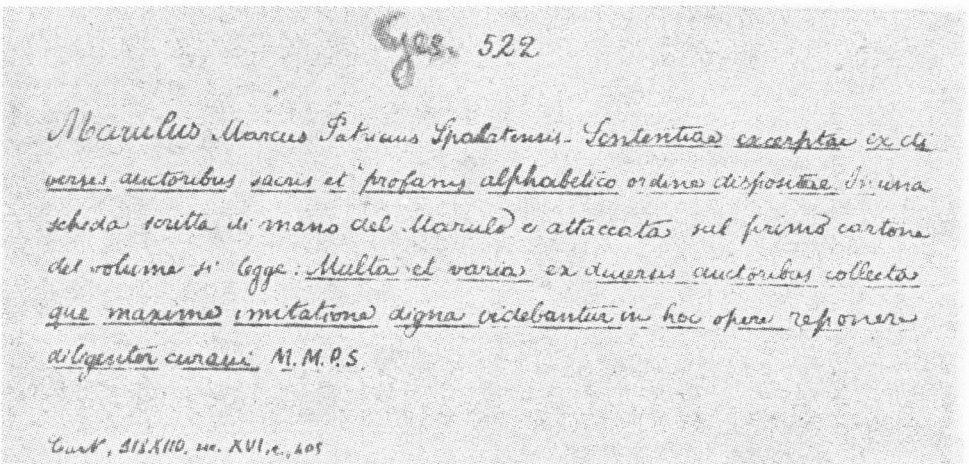 Ges. 522
Marulus Marcus Patricius Spalatensis - Sententiae excerptae ex di
versis auctoribus sacris et profanis alphabetico ordine dispositae In una
scheda scritta di mano del Marulo e attaccata sul primo cartone
del volume si legge: Multa et varia ex diversis auctoribus collecta
que maxime imitatione digna videbantur in hoc opere reponere
diligenter curavi M.M.P.S.
Cart, 318X110, sec. XVI, c., 405